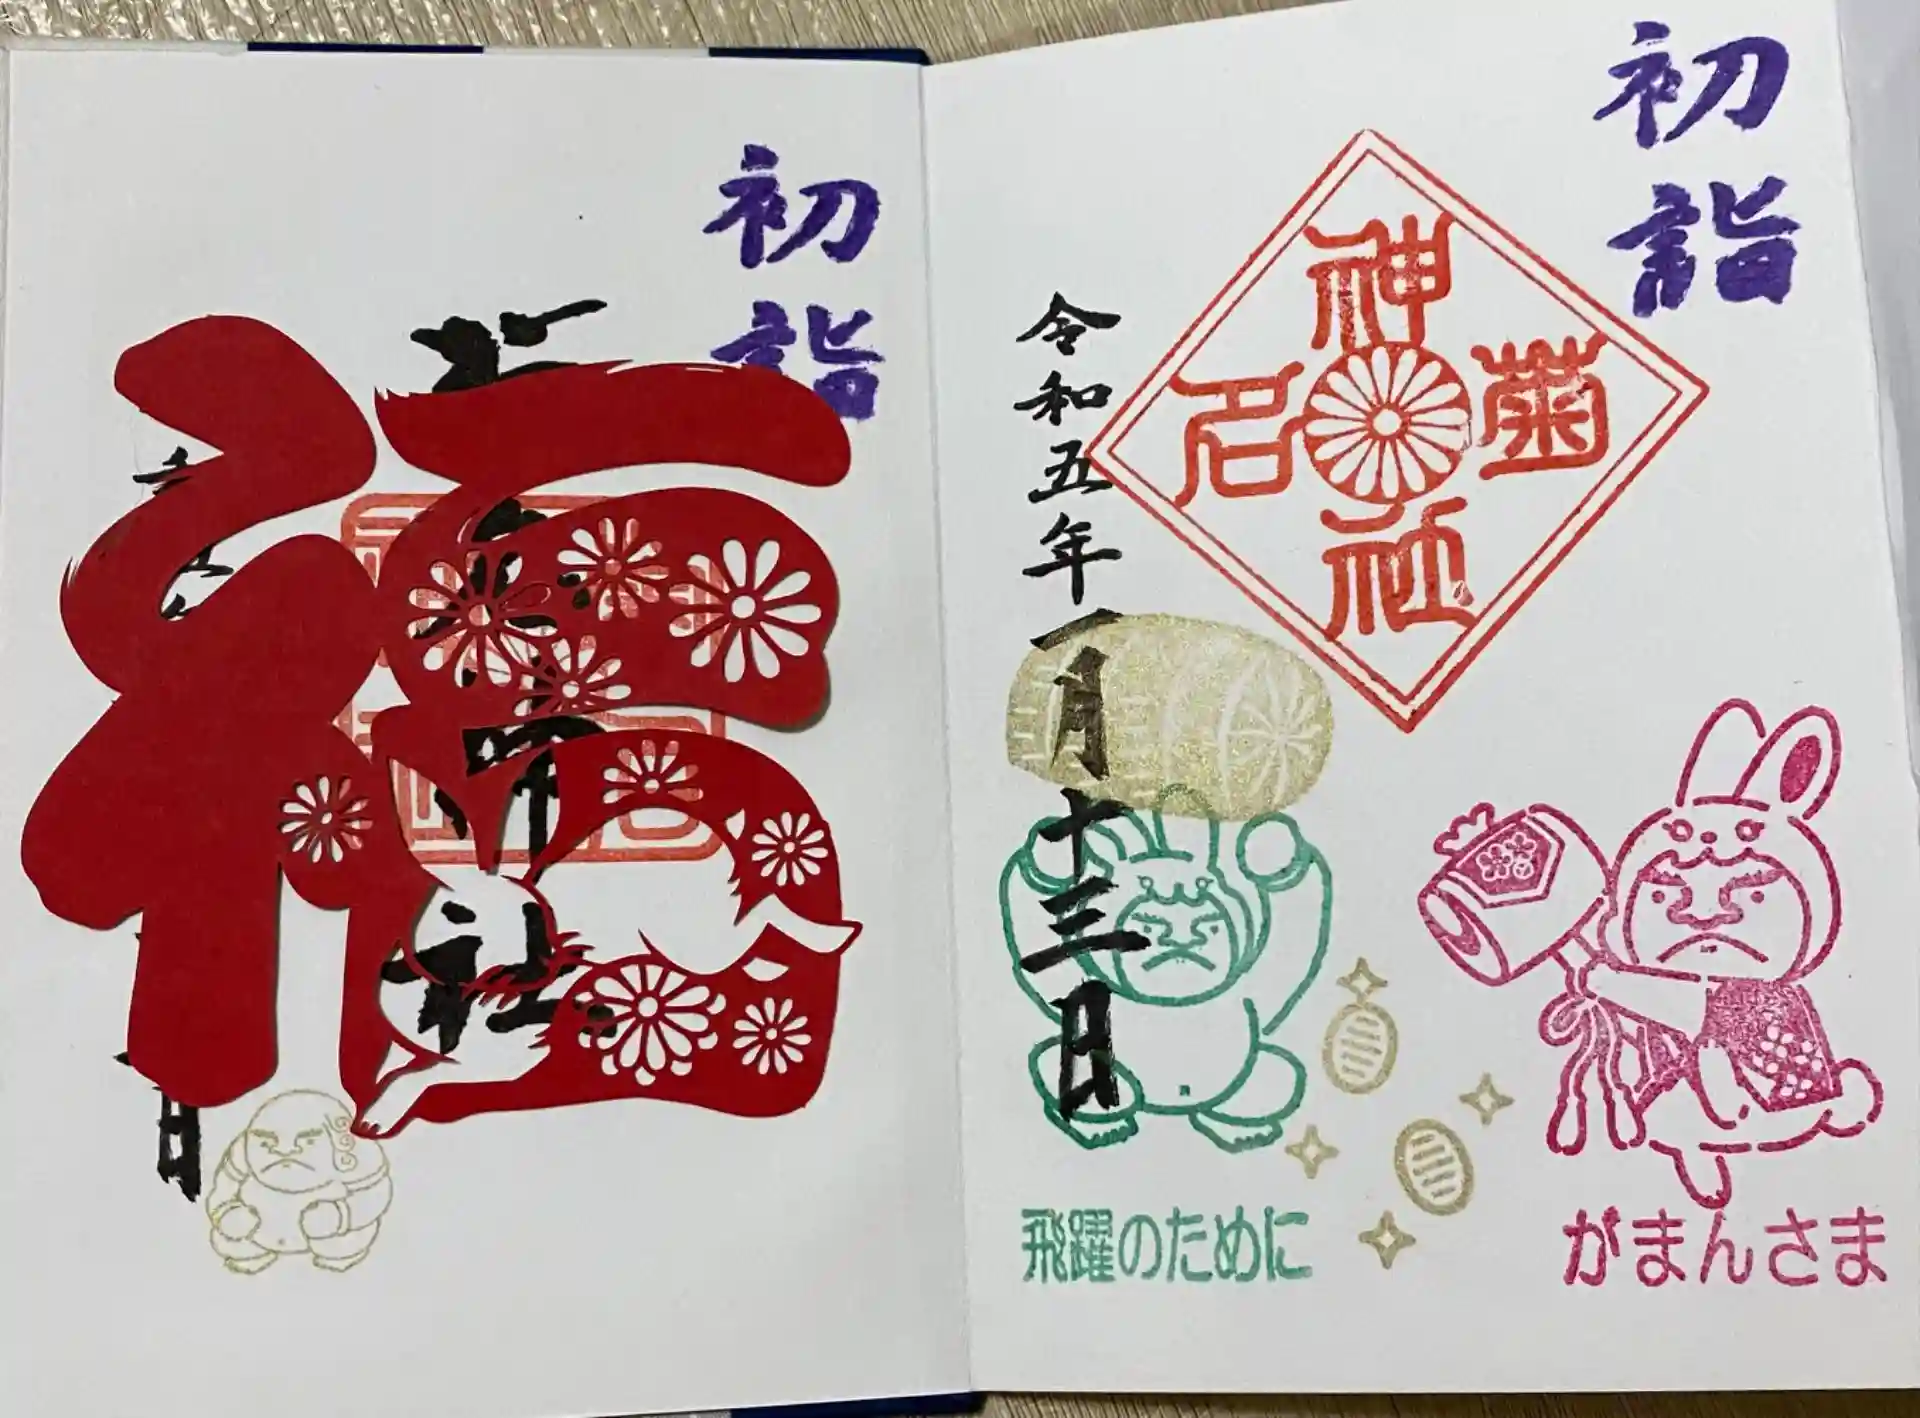 初詣
菊名神社
令和五年一月十三日
がまんさま
飛躍のために
初詣
福
社
日